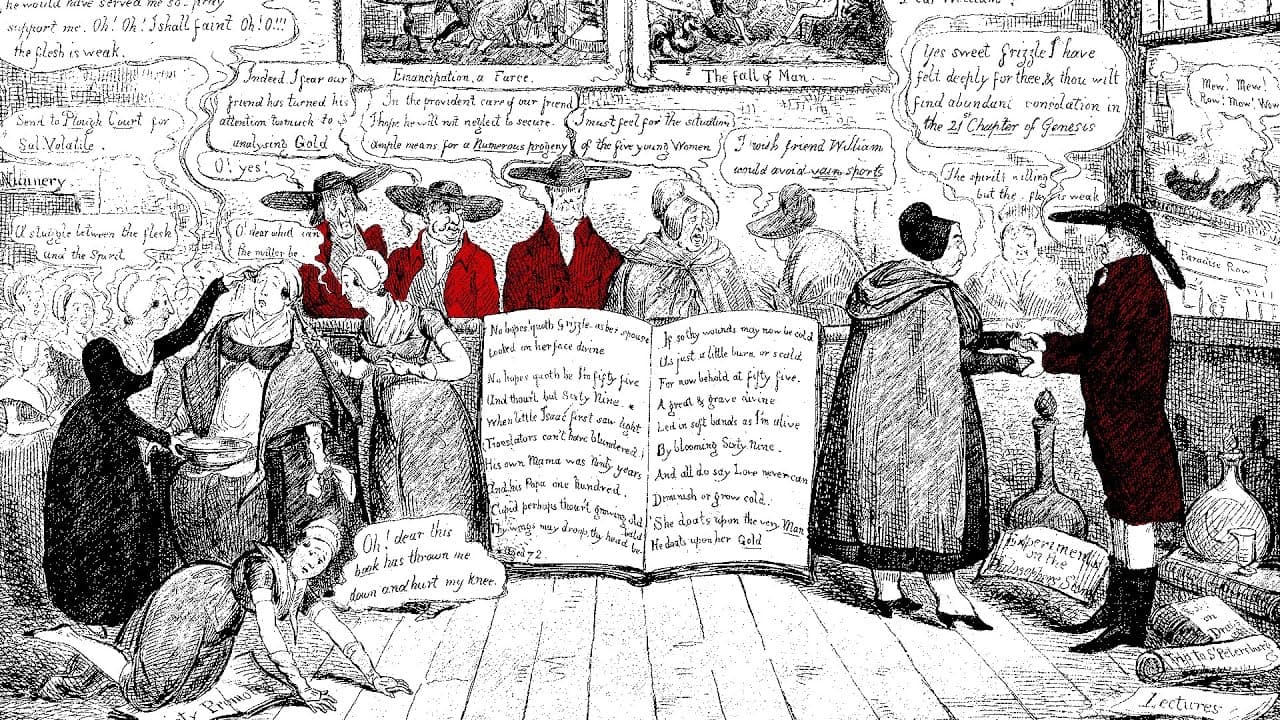 he would have served me so. pray
support me. Oh! Oh! I shall faint Oh! O!!!
the flesh is weak.
Send to Plough Court for
Sal Volatile.
A stuggle between the flesh
and the Spirit
Indeed I fear our
friend has turned his
attention to much to
analysing Gold
O! yes!
O! dear what can
the matter be
Emancipation, a Farce.
The fall of Man.
In the provident care of our friend
I hope he will not neglect to secure
ample means for a Numerous progeny
I must feel for the situation
of the five young Women
I wish friend William
would avoid vain sports
Yes sweet Grizzle I have
felt deeply for thee & thou wilt
find abundant consolation in
the 21st Chapter of Genesis
The spirit's willing
but the flesh is weak
Mew! Mew!
Paradise Row
No hopes, quoth Grizzle, as her spouse
Looked on her face divine
No hopes quoth he I'm fifty five
And thou'rt but Sixty Nine. *
When little Isaac first saw light
Translators can't have blundered!
His own Mama was Ninty years
And his Papa one hundred.
Cupid perhaps thou'rt growing old
Thy wings may droop, thy head be bald
If so thy wounds may now be cold
Us just a little burn, or scald
For now behold at fifty five.
A great & grave divine
Led in soft bands as I'm alive
By blooming Sixty nine.
And all do say Love never can
Diminish or grow cold.
She doats upon the very Man
He doats upon her Gold
Oh! dear this
book has thrown me
down and hurt my knee.
Experiments
on the
Philosophers Stone
on
Trip to St Petersburg
Lectures